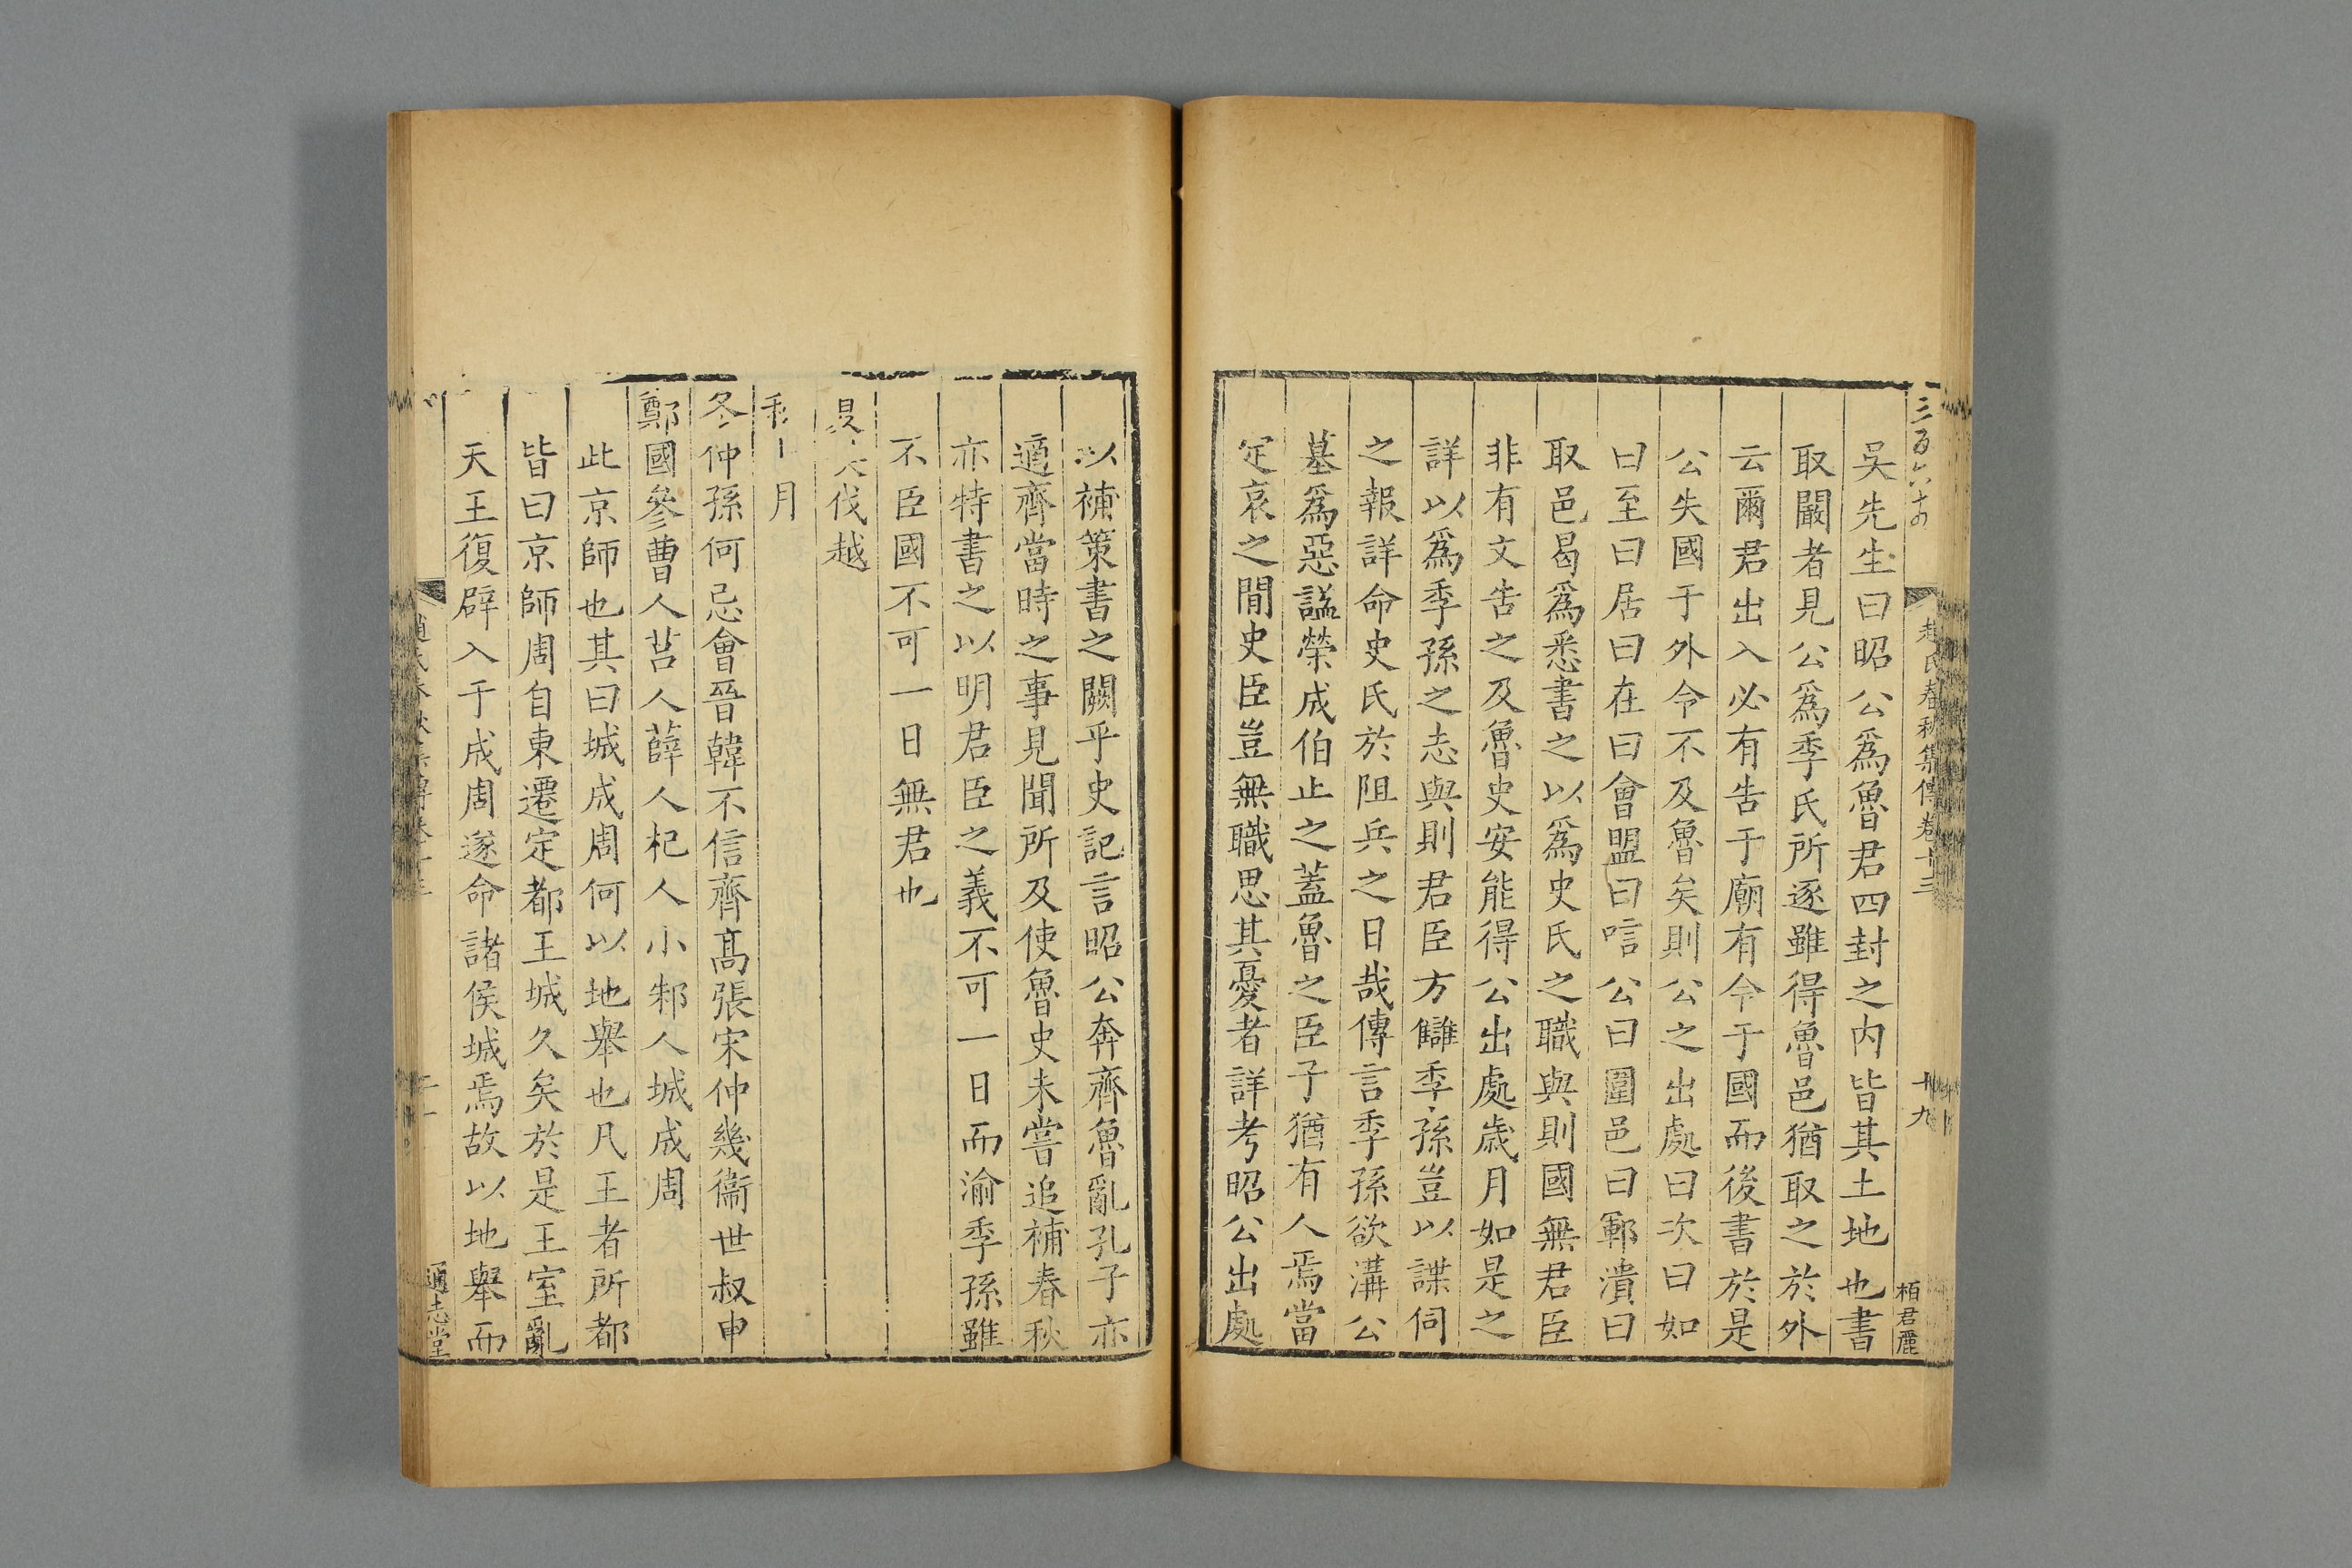 三百六十四
趙氏春秋集傳卷十三
十九
栢君麗
吳先生曰昭公爲魯君四封之内皆其土地也書
取闞者見公爲季氏所逐雖得魯邑猶取之於外
云爾君出入必有告于廟有令于國而後書於是
公失國于外令不及魯矣則公之出處曰次曰如
曰至曰居曰在曰會盟曰唁公曰圍邑曰鄆潰曰
取邑曷爲悉書之以爲史氏之職與則國無君臣
非有文告之及魯史安能得公出處歲月如是之
詳以爲季孫之志與則君臣方讎季孫豈以諜伺
之報詳命史氏於阻兵之日哉傳言季孫欲溝公
墓爲惡諡榮成伯止之蓋魯之臣子猶有人焉當
定哀之間史臣豈無職思其憂者詳考昭公出處
以補策書之闕乎史記言昭公奔齊魯亂孔子亦
適齊當時之事見聞所及使魯史未嘗追補春秋
亦特書之以明君臣之義不可一日而渝季孫雖
不臣國不可一日無君也
伐越
月
冬仲孫何忌會晉韓不信齊高張宋仲幾衞世叔申
鄭國參曹人莒人薛人杞人小邾人城成周
此京師也其曰城成周何以地舉也凡王者所都
皆曰京師周自東遷定都王城久矣於是王室亂
天王復辟入于成周遂命諸侯城焉故以地舉而
通志堂